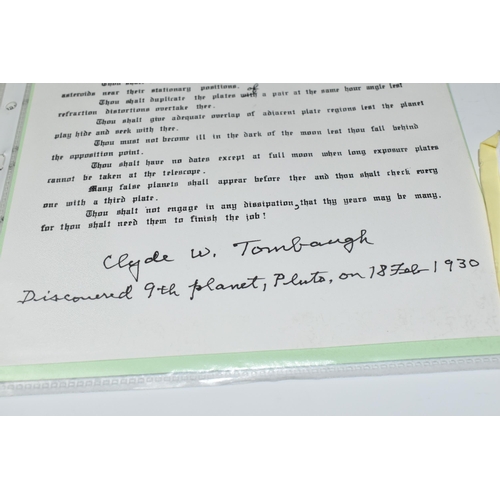 Thou shalt
asteroids near their stationary positions. of
Thou shalt duplicate the plates with a pair at the same hour angle lest
refraction distortions overtake thee.
Thou shalt give adequate overlap of adjacent plate regions lest the planet
play hide and seek with thee.
Thou must not become ill in the dark of the moon lest thou fall behind
the opposition point.
Thou shalt have no dates except at full moon when long exposure plates
cannot be taken at the telescope.
Many false planets shall appear before thee and thou shalt check every
one with a third plate.
Thou shalt not engage in any dissipation, that thy years may be many,
for thou shalt need them to finish the job!
Clyde W. Tombaugh
Discovered 9th planet, Pluto, on 18 Feb 1930